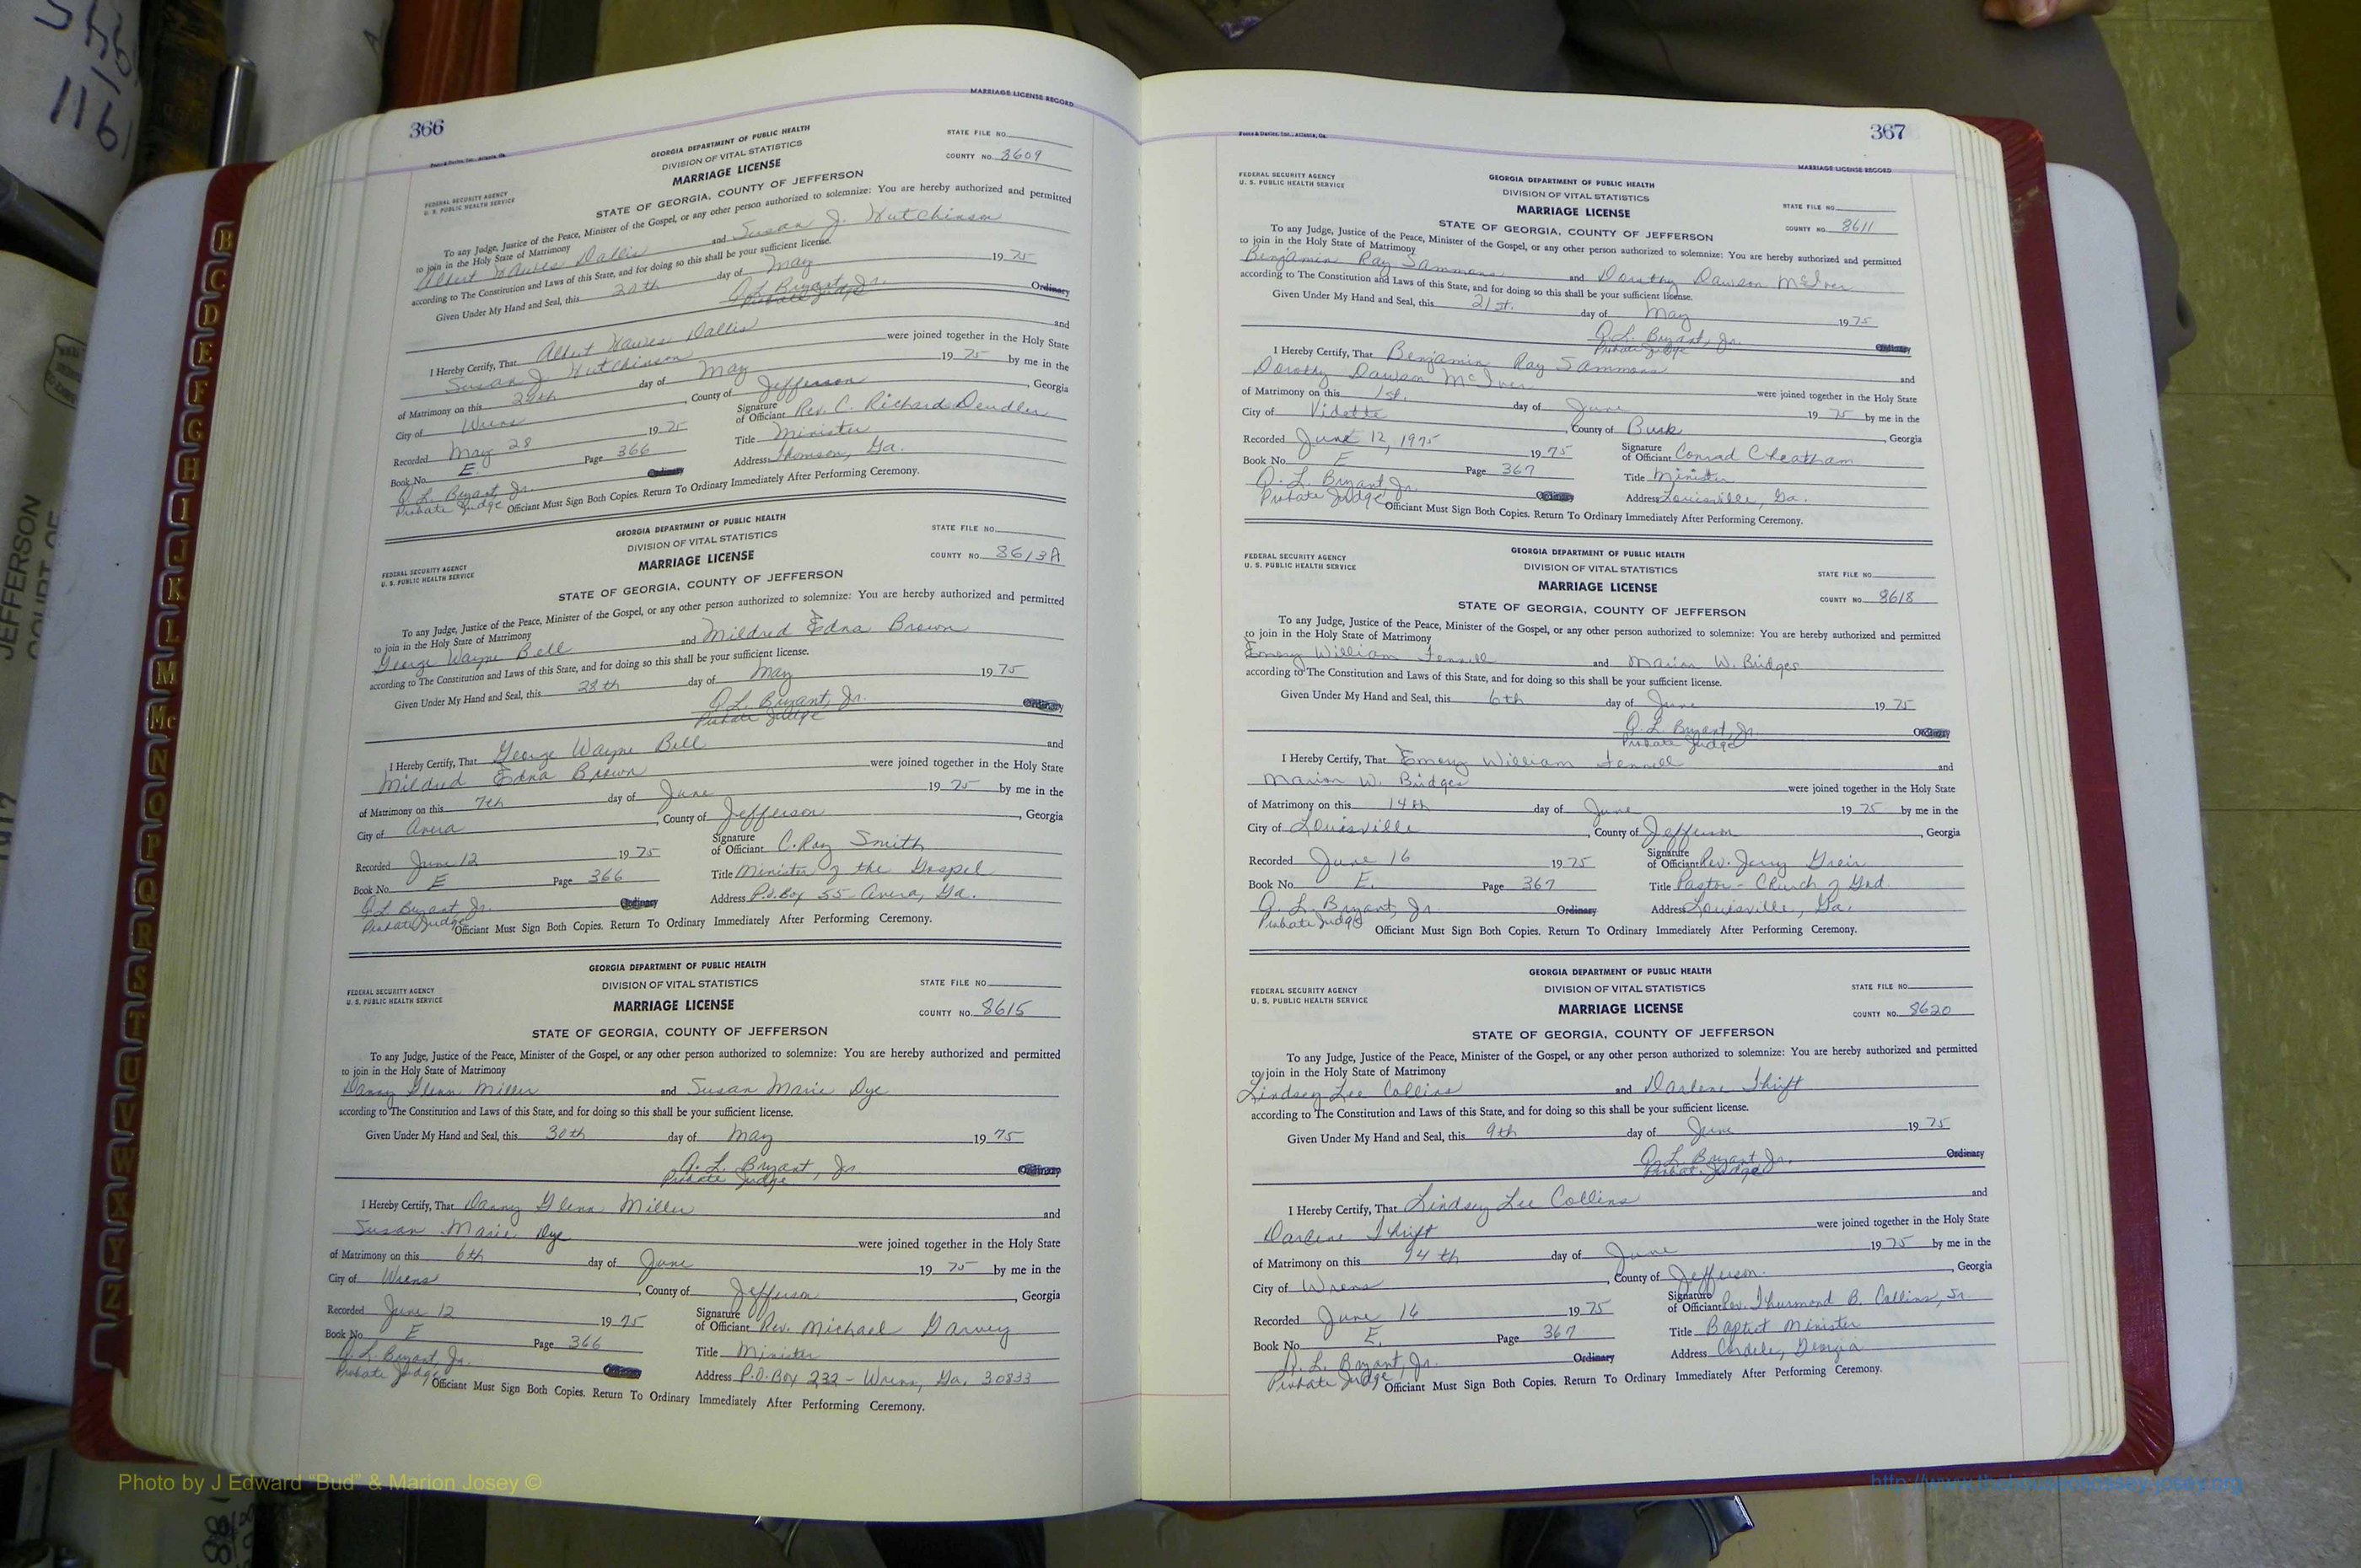 366
MARRIAGE LICENSE RECORD
Foote & Davies, Inc., Atlanta, Ga.
GEORGIA DEPARTMENT OF PUBLIC HEALTH
DIVISION OF VITAL STATISTICS
MARRIAGE LICENSE
STATE FILE NO.
COUNTY NO. 8609
FEDERAL SECURITY AGENCY
U. S. PUBLIC HEALTH SERVICE
STATE OF GEORGIA, COUNTY OF JEFFERSON
To any Judge, Justice of the Peace, Minister of the Gospel, or any other person authorized to solemnize: You are hereby authorized and permitted
to join in the Holy State of Matrimony
Albert Hawes Dallis and Susan J. Hutchinson
according to The Constitution and Laws of this State, and for doing so this shall be your sufficient license.
Given Under My Hand and Seal, this 20th day of May 1975
Q. L. Bryant, Jr. Ordinary
Probate Judge
I Hereby Certify, That Albert Hawes Dallis and
Susan J. Hutchinson were joined together in the Holy State
of Matrimony on this day of May 1975 by me in the
City of Wrens, County of Jefferson, Georgia
Recorded May 28 1975 Signature of Officiant Rev. C. Richard Dendler
Book No. E. Page 366 Title Minister
Q. L. Bryant, Jr. Ordinary Address Thomson, Ga.
Probate Judge Officiant Must Sign Both Copies. Return To Ordinary Immediately After Performing Ceremony.
GEORGIA DEPARTMENT OF PUBLIC HEALTH
DIVISION OF VITAL STATISTICS
MARRIAGE LICENSE
STATE FILE NO.
COUNTY NO. 8613A
FEDERAL SECURITY AGENCY
U. S. PUBLIC HEALTH SERVICE
STATE OF GEORGIA, COUNTY OF JEFFERSON
To any Judge, Justice of the Peace, Minister of the Gospel, or any other person authorized to solemnize: You are hereby authorized and permitted
to join in the Holy State of Matrimony
George Wayne Bell and Mildred Edna Brown
according to The Constitution and Laws of this State, and for doing so this shall be your sufficient license.
Given Under My Hand and Seal, this 28th day of May 1975
Q. L. Bryant, Jr. Ordinary
Probate Judge
I Hereby Certify, That George Wayne Bell and
Mildred Edna Brown were joined together in the Holy State
of Matrimony on this 7th day of June 1975 by me in the
City of Avera, County of Jefferson, Georgia
Recorded June 12 1975 Signature of Officiant C. Ray Smith
Book No. E Page 366 Title Minister of the Gospel
Q. L. Bryant, Jr. Ordinary Address P.O. Box 55 - Avera, Ga.
Probate Judge Officiant Must Sign Both Copies. Return To Ordinary Immediately After Performing Ceremony.
GEORGIA DEPARTMENT OF PUBLIC HEALTH
DIVISION OF VITAL STATISTICS
MARRIAGE LICENSE
STATE FILE NO.
COUNTY NO. 8615
FEDERAL SECURITY AGENCY
U. S. PUBLIC HEALTH SERVICE
STATE OF GEORGIA, COUNTY OF JEFFERSON
To any Judge, Justice of the Peace, Minister of the Gospel, or any other person authorized to solemnize: You are hereby authorized and permitted
to join in the Holy State of Matrimony
Danny Glenn Miller and Susan Marie Dye
according to The Constitution and Laws of this State, and for doing so this shall be your sufficient license.
Given Under My Hand and Seal, this 30th day of May 1975
Q. L. Bryant, Jr. Ordinary
Probate Judge
I Hereby Certify, That Danny Glenn Miller and
Susan Marie Dye were joined together in the Holy State
of Matrimony on this 6th day of June 1975 by me in the
City of Wrens, County of Jefferson, Georgia
Recorded June 12 1975 Signature of Officiant Rev. Michael Garvey
Book No. E Page 366 Title Minister
Q. L. Bryant, Jr. Ordinary Address P.O. Box 232 - Wrens, Ga. 30833
Probate Judge Officiant Must Sign Both Copies. Return To Ordinary Immediately After Performing Ceremony.
367
Foote & Davies, Inc., Atlanta, Ga.
MARRIAGE LICENSE RECORD
FEDERAL SECURITY AGENCY
U. S. PUBLIC HEALTH SERVICE
GEORGIA DEPARTMENT OF PUBLIC HEALTH
DIVISION OF VITAL STATISTICS
MARRIAGE LICENSE
STATE FILE NO.
COUNTY NO. 8611
STATE OF GEORGIA, COUNTY OF JEFFERSON
To any Judge, Justice of the Peace, Minister of the Gospel, or any other person authorized to solemnize: You are hereby authorized and permitted
to join in the Holy State of Matrimony
Benjamin Ray Sammons and Dorothy Dawson McIver
according to The Constitution and Laws of this State, and for doing so this shall be your sufficient license.
Given Under My Hand and Seal, this 21st. day of May 1975
Q. L. Bryant, Jr. Ordinary
Probate Judge
I Hereby Certify, That Benjamin Ray Sammons and
Dorothy Dawson McIver were joined together in the Holy State
of Matrimony on this 1st. day of June 1975 by me in the
City of Vidette, County of Burk, Georgia
Recorded June 12, 1975 1975 Signature of Officiant Conrad Cheatham
Book No. E Page 367 Title Minister
Q. L. Bryant, Jr. Ordinary Address Louisville, Ga.
Probate Judge Officiant Must Sign Both Copies. Return To Ordinary Immediately After Performing Ceremony.
FEDERAL SECURITY AGENCY
U. S. PUBLIC HEALTH SERVICE
GEORGIA DEPARTMENT OF PUBLIC HEALTH
DIVISION OF VITAL STATISTICS
MARRIAGE LICENSE
STATE FILE NO.
COUNTY NO. 8618
STATE OF GEORGIA, COUNTY OF JEFFERSON
To any Judge, Justice of the Peace, Minister of the Gospel, or any other person authorized to solemnize: You are hereby authorized and permitted
to join in the Holy State of Matrimony
Emory William Fennell and Marion W. Bridges
according to The Constitution and Laws of this State, and for doing so this shall be your sufficient license.
Given Under My Hand and Seal, this 6th day of June 1975
Q. L. Bryant, Jr. Ordinary
Probate Judge
I Hereby Certify, That Emory William Fennell and
Marion W. Bridges were joined together in the Holy State
of Matrimony on this 14th day of June 1975 by me in the
City of Louisville, County of Jefferson, Georgia
Recorded June 16 1975 Signature of Officiant Rev. Jerry Greir
Book No. E. Page 367 Title Pastor - Church of God.
Q. L. Bryant, Jr. Ordinary Address Louisville, Ga.
Probate Judge Officiant Must Sign Both Copies. Return To Ordinary Immediately After Performing Ceremony.
FEDERAL SECURITY AGENCY
U. S. PUBLIC HEALTH SERVICE
GEORGIA DEPARTMENT OF PUBLIC HEALTH
DIVISION OF VITAL STATISTICS
MARRIAGE LICENSE
STATE FILE NO.
COUNTY NO. 8620
STATE OF GEORGIA, COUNTY OF JEFFERSON
To any Judge, Justice of the Peace, Minister of the Gospel, or any other person authorized to solemnize: You are hereby authorized and permitted
to join in the Holy State of Matrimony
Lindsey Lee Collins and Darlene Thrift
according to The Constitution and Laws of this State, and for doing so this shall be your sufficient license.
Given Under My Hand and Seal, this 9th day of June 1975
Q. L. Bryant, Jr. Ordinary
Probate Judge
I Hereby Certify, That Lindsey Lee Collins and
Darlene Thrift were joined together in the Holy State
of Matrimony on this 14th day of June 1975 by me in the
City of Wrens, County of Jefferson, Georgia
Recorded June 16 1975 Signature of Officiant Rev. Thurmond B. Collins, Sr.
Book No. E. Page 367 Title Baptist Minister
Q. L. Bryant, Jr. Ordinary Address Cordele, Georgia
Probate Judge Officiant Must Sign Both Copies. Return To Ordinary Immediately After Performing Ceremony.
B
C
D
E
F
G
H
I
J
K
L
M
Mc
N
O
P
Q
R
S
T
U
V
W
X
Y
Z
JEFFERSON
COURT OF
Photo by J Edward "Bud" & Marion Josey ©